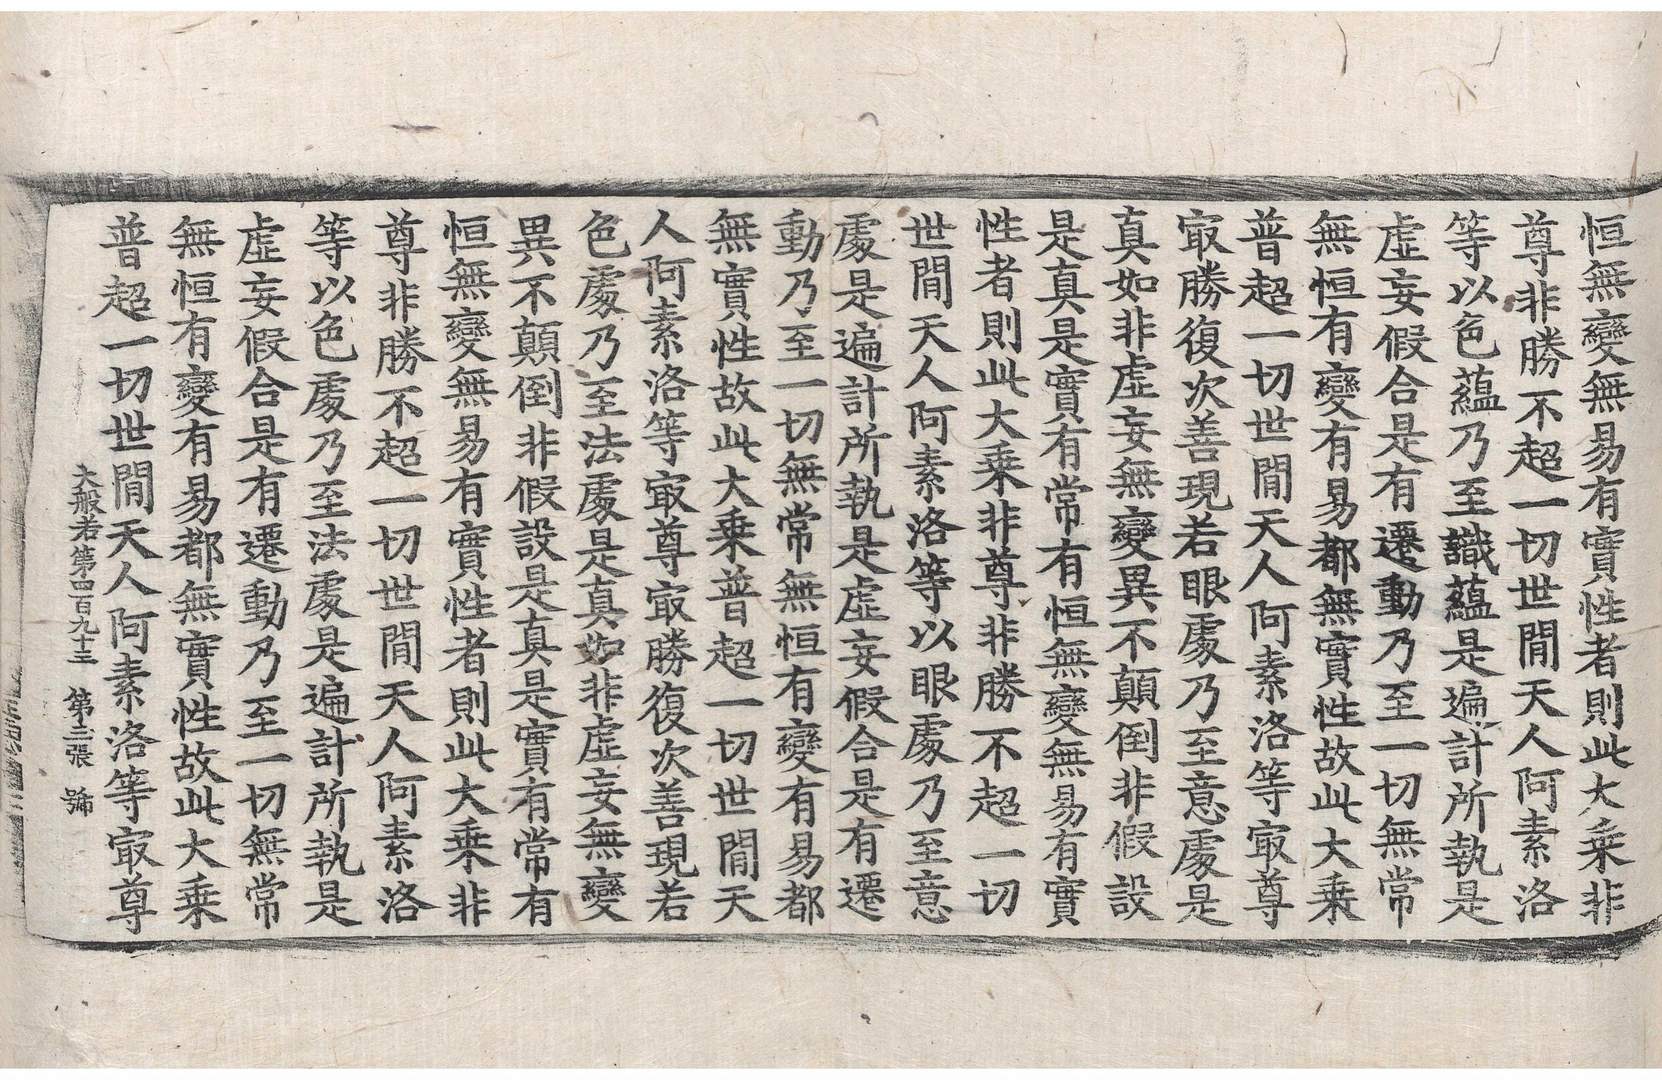 恒無變無易有實性者則此大乘非
尊非勝不超一切世間天人阿素洛
等以色蘊乃至識蘊是遍計所執是
虛妄假合是有遷動乃至一切無常
無恒有變有易都無實性故此大乘
普超一切世間天人阿素洛等冣尊
冣勝復次善現若眼處乃至意處是
真如非虛妄無變異不顛倒非假設
是真是實有常有恒無變無易有實
性者則此大乘非尊非勝不超一切
世間天人阿素洛等以眼處乃至意
處是遍計所執是虛妄假合是有遷
動乃至一切無常無恒有變有易都
無實性故此大乘普超一切世間天
人阿素洛等冣尊冣勝復次善現若
色處乃至法處是真如非虛妄無變
異不顛倒非假設是真是實有常有
恒無變無易有實性者則此大乘非
尊非勝不超一切世間天人阿素洛
等以色處乃至法處是遍計所執是
虛妄假合是有遷動乃至一切無常
無恒有變有易都無實性故此大乘
普超一切世間天人阿素洛等冣尊
大般若第四百九十三 第三張 號